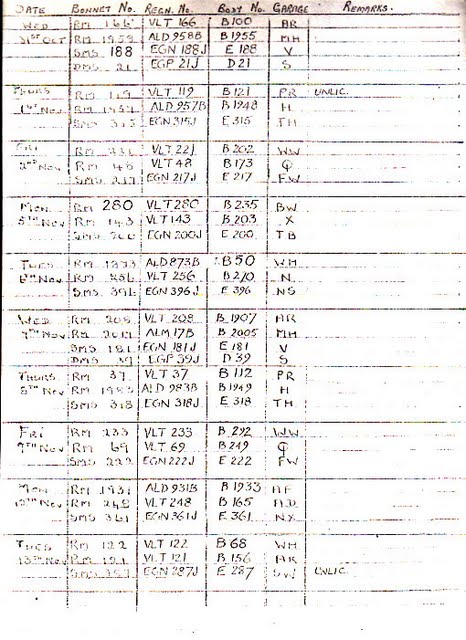 DATE BONNET No. REGN. No. BODY No. GARAGE REMARKS.
WED RM 166 VLT 166 B100 AR
31ST OCT RM 1958 ALD 958B B1955 MH
SMS 188 EGN 188J E 188 V
DMS 21 EGP 21J D21 S
THURS RM 119 VLT 119 B121 PR UNLIC.
1ST NOV RM 1957 ALD 957B B1948 H
SMS 315 EGN 315J E 315 TH
FRI RM VLT 221 B202 WW
2ND NOV RM 48 VLT 48 B173 Q
SMS 217 EGN 217J E 217 FW
MON RM 280 VLT 280 B235 BW
5TH NOV RM 143 VLT 143 B203 X
SMS 200 EGN 200J E 200 TB
TUES RM 1873 ALD 873B B50 WH
6TH NOV RM 256 VLT 256 B270 N
SMS 396 EGN 396J E 396 NS
WED RM 208 VLT 208 B1907 AR
7TH NOV RM 2017 ALM 17B B2005 MH
SMS 181 EGN 181J E 181 V
DMS 39 EGP 39J D39 S
THURS RM 37 VLT 37 B112 PR
8TH NOV RM 1983 ALD 983B B1949 H
SMS 318 EGN 318J E 318 TH
FRI RM 233 VLT 233 B292 WW
9TH NOV RM 69 VLT 69 B249 Q
SMS 222 EGN 222J E 222 FW
MON RM 1931 ALD 931B B1933 AF
12TH NOV RM 248 VLT 248 B165 AD
SMS 361 EGN 361J E 361 NX
TUES RM 122 VLT 122 B68 WH
13TH NOV RM 121 VLT 121 B156 AR
SMS EGN 287J E 287 SW UNLIC.